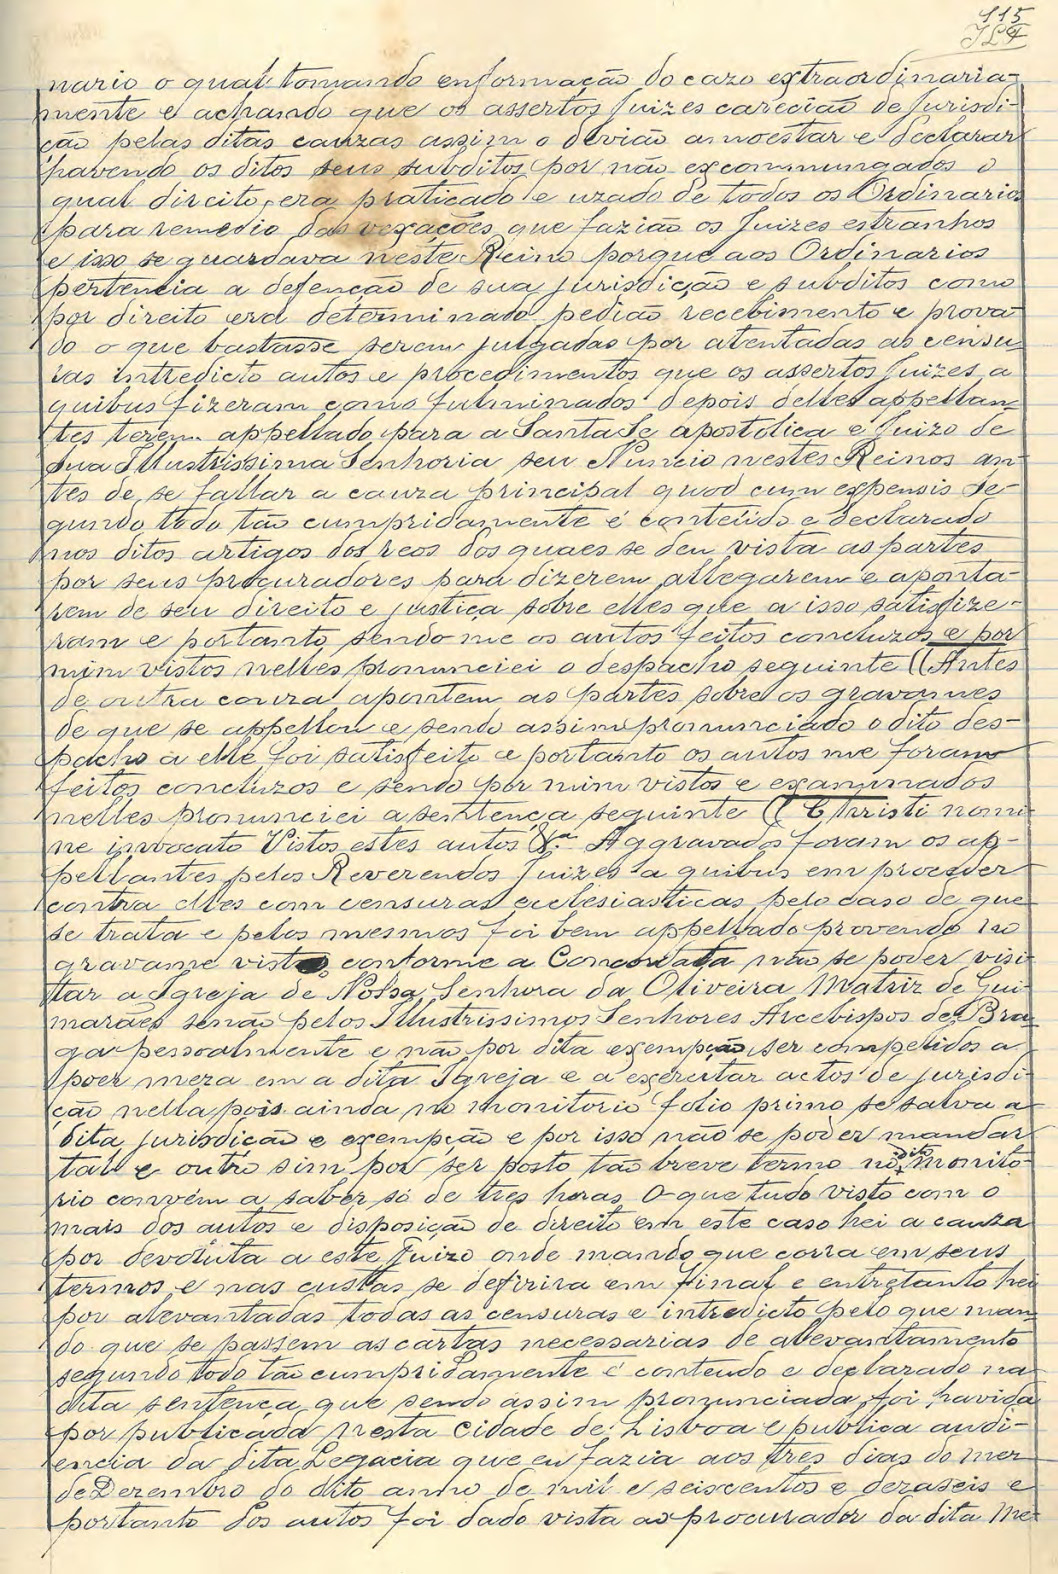 115
nario o qual tomando enformação do cazo extraordinaria-
mente e achando que os assertos Juizes carecião de Jurisdi-
ção pelas ditas cauzas assim o devião amoestar e declarar
havendo os ditos seus subditos por não excommungados o
qual direito era praticado e uzado de todos os Ordinarios
para remedio das vexações que fazião os Juizes estranhos
e isso se guardava neste Reino porque aos Ordinarios
pertencia a defenção de sua jurisdicção e subditos como
por direito era determinado pedião recebimento e prova-
do o que bastasse serem julgadas por atentadas as censu-
ras intredicto autos e procedimentos que os assertos Juizes a
quibus fizeram como fulminados depois delles appellan-
tes terem appellado para a Santa Se apostolica e Juizo de
Sua Illustrissima Senhoria seu Nuncio nestes Reinos an-
tes de se fallar a cauza principal quod cum expensis Se-
gundo todo tão cumpridamente é conteúdo e declarado
nos ditos artigos dos reos dos quaes se deu vista as partes
por seus procuradores para dizerem allegarem e aponta-
rem de seu direito e justiça sobre elles que a isso satisfize-
ram e portanto sendo me os autos feitos concluzos e por
mim vistos nelles pronunciei o despacho seguinte ((Antes
de outra couza apontem as partes sobre os gravames
de que se appellou e sendo assim pronunciado o dito des-
pacho a elle foi satisfeito e portanto os autos me foram
feitos concluzos e sendo por mim vistos e examinados
nelles pronunciei a sentença seguinte ((Christi nomi-
ne invocato Vistos estes autos &.ª Aggravados foram os ap-
pellantes pelos Reverendos Juizes a quibus em proceder
contra elles com censuras ecclesiasticas pelo caso de que
se trata e pelos mesmos foi bem appellado provendo no
gravame visto conforme a Concordata não se poder visi-
tar a Igreja de Nossa Senhora da Oliveira Matriz de Gui-
marães senão pelos Illustrissimos Senhores Arcebispos de Bra-
ga pessoalmente e não por dita exempção ser compellidos a
poer meza em a dita Igreja e a exercitar actos de jurisdi-
ção nella pois ainda no monitorio folio primo se salva a
dita jurisdição e exempção e por isso não se poder mandar
tal e outro sim por ser posto tão breve termo no dito monito-
rio convém a saber só de tres horas O que tudo visto com o
mais dos autos e disposição de direito em este caso hei a cauza
por devoluta a este Juizo onde mando que corra em seus
termos e nas custas se defirira em final e entretanto hei
por alevantadas todas as censuras e intredicto pelo que man-
do que se passem as cartas necessarias de alevantamento
segundo todo tão cumpridamente é contendo e declarado na
dita sentença que sendo assim pronunciada foi havida
por publicada nesta Cidade de Lisboa e publica audi-
encia da dita Legacia que eu fazia aos tres dias do mez
de Dezembro do dito anno de mil e seiscentos e dezaseis e
portanto dos autos foi dado vista ao procurador da dita Me-